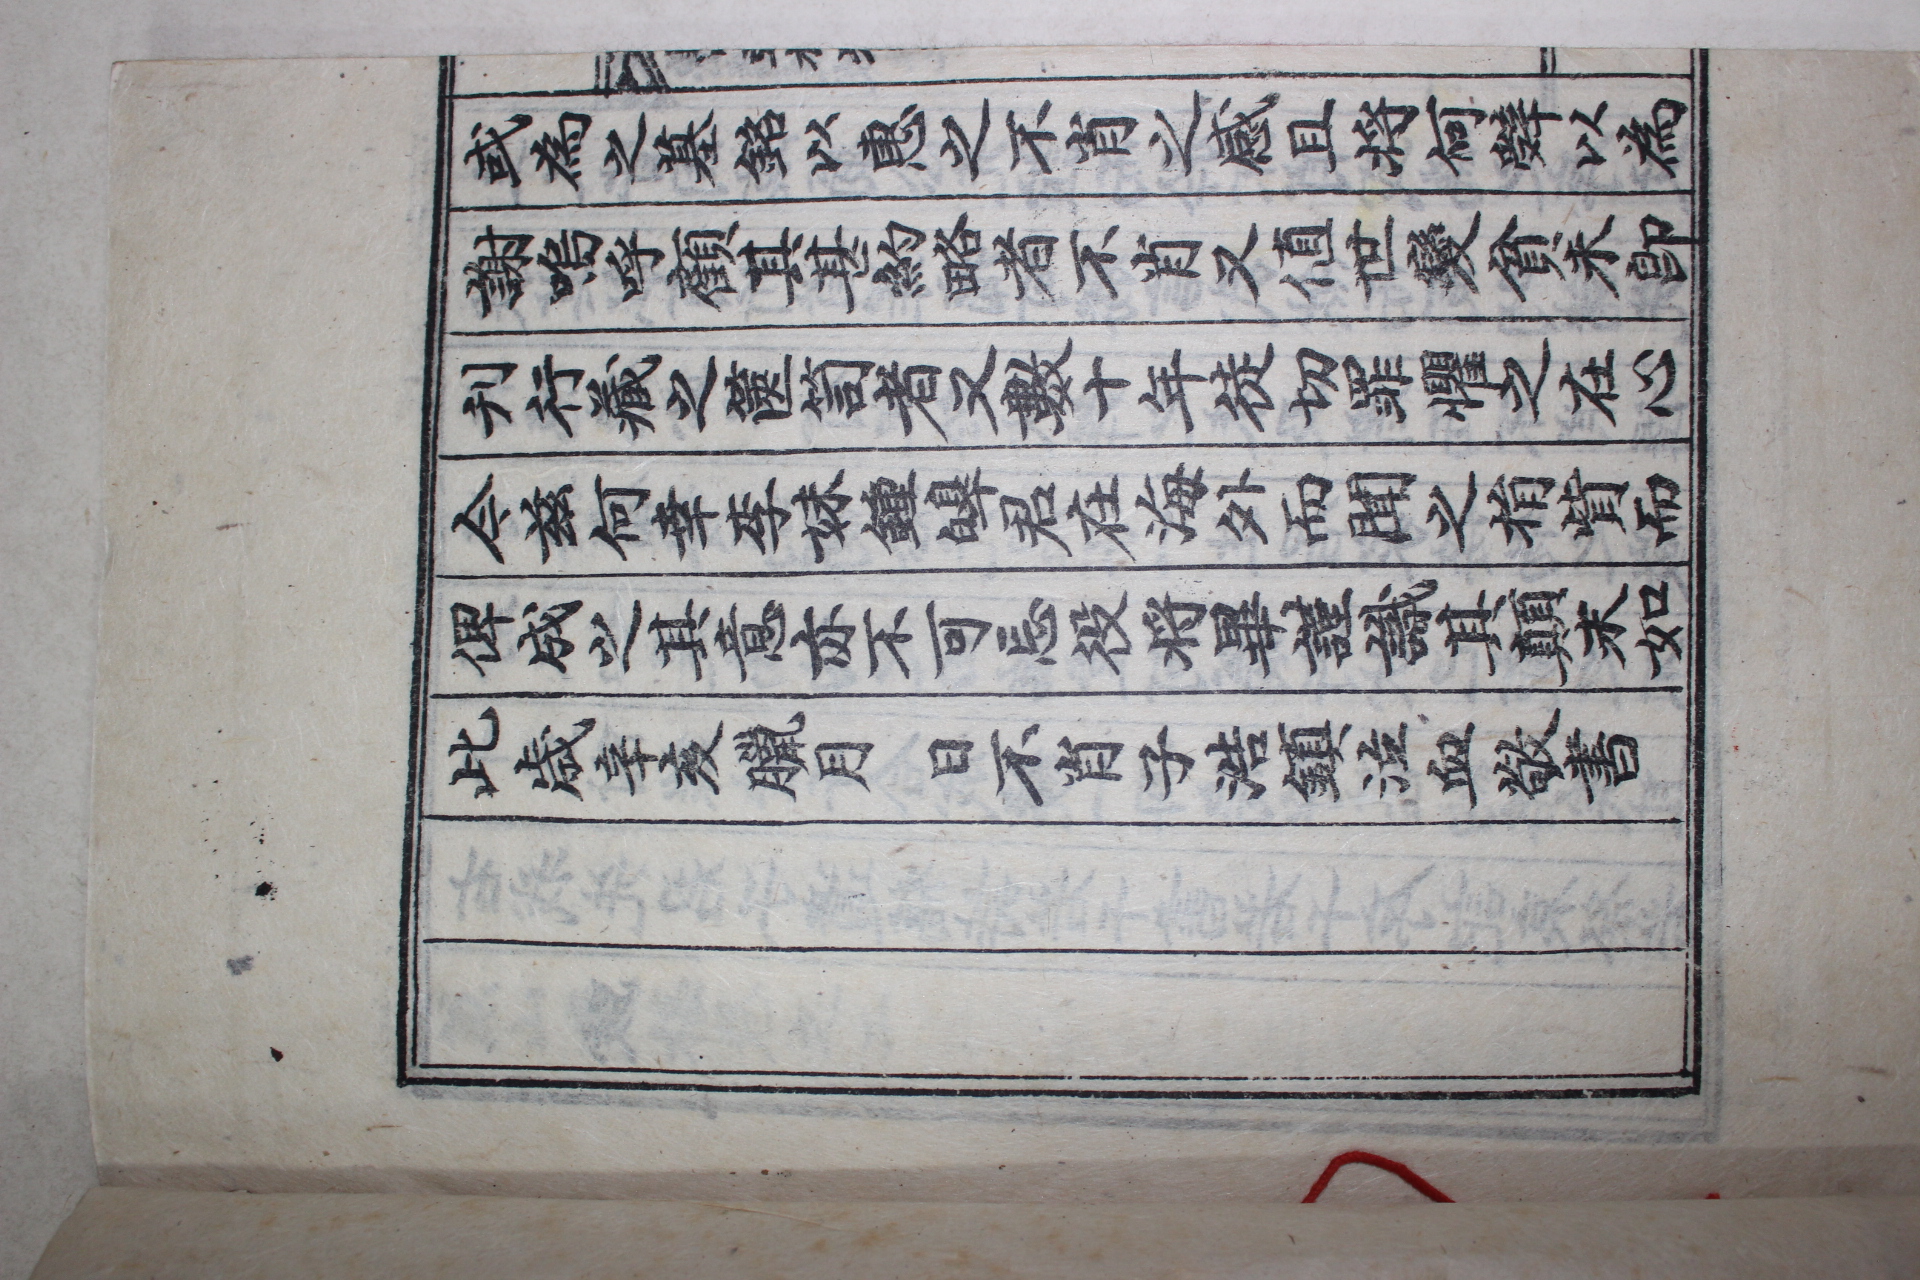 或爲之墓銘以惠之不肖之感且將何辭以爲
謝嗚呼顧其其然略者不肖又值世變貧未卽
刊行藏之篋笥者又數十年徒切罪懼之在心
今玆何幸季妹鍾皡君在海外而聞之捐貲而
俾成之其意亦不可忘役將畢謹識其顚末如
比歲辛亥臘月 日不肖子浩鎭泣血敬書